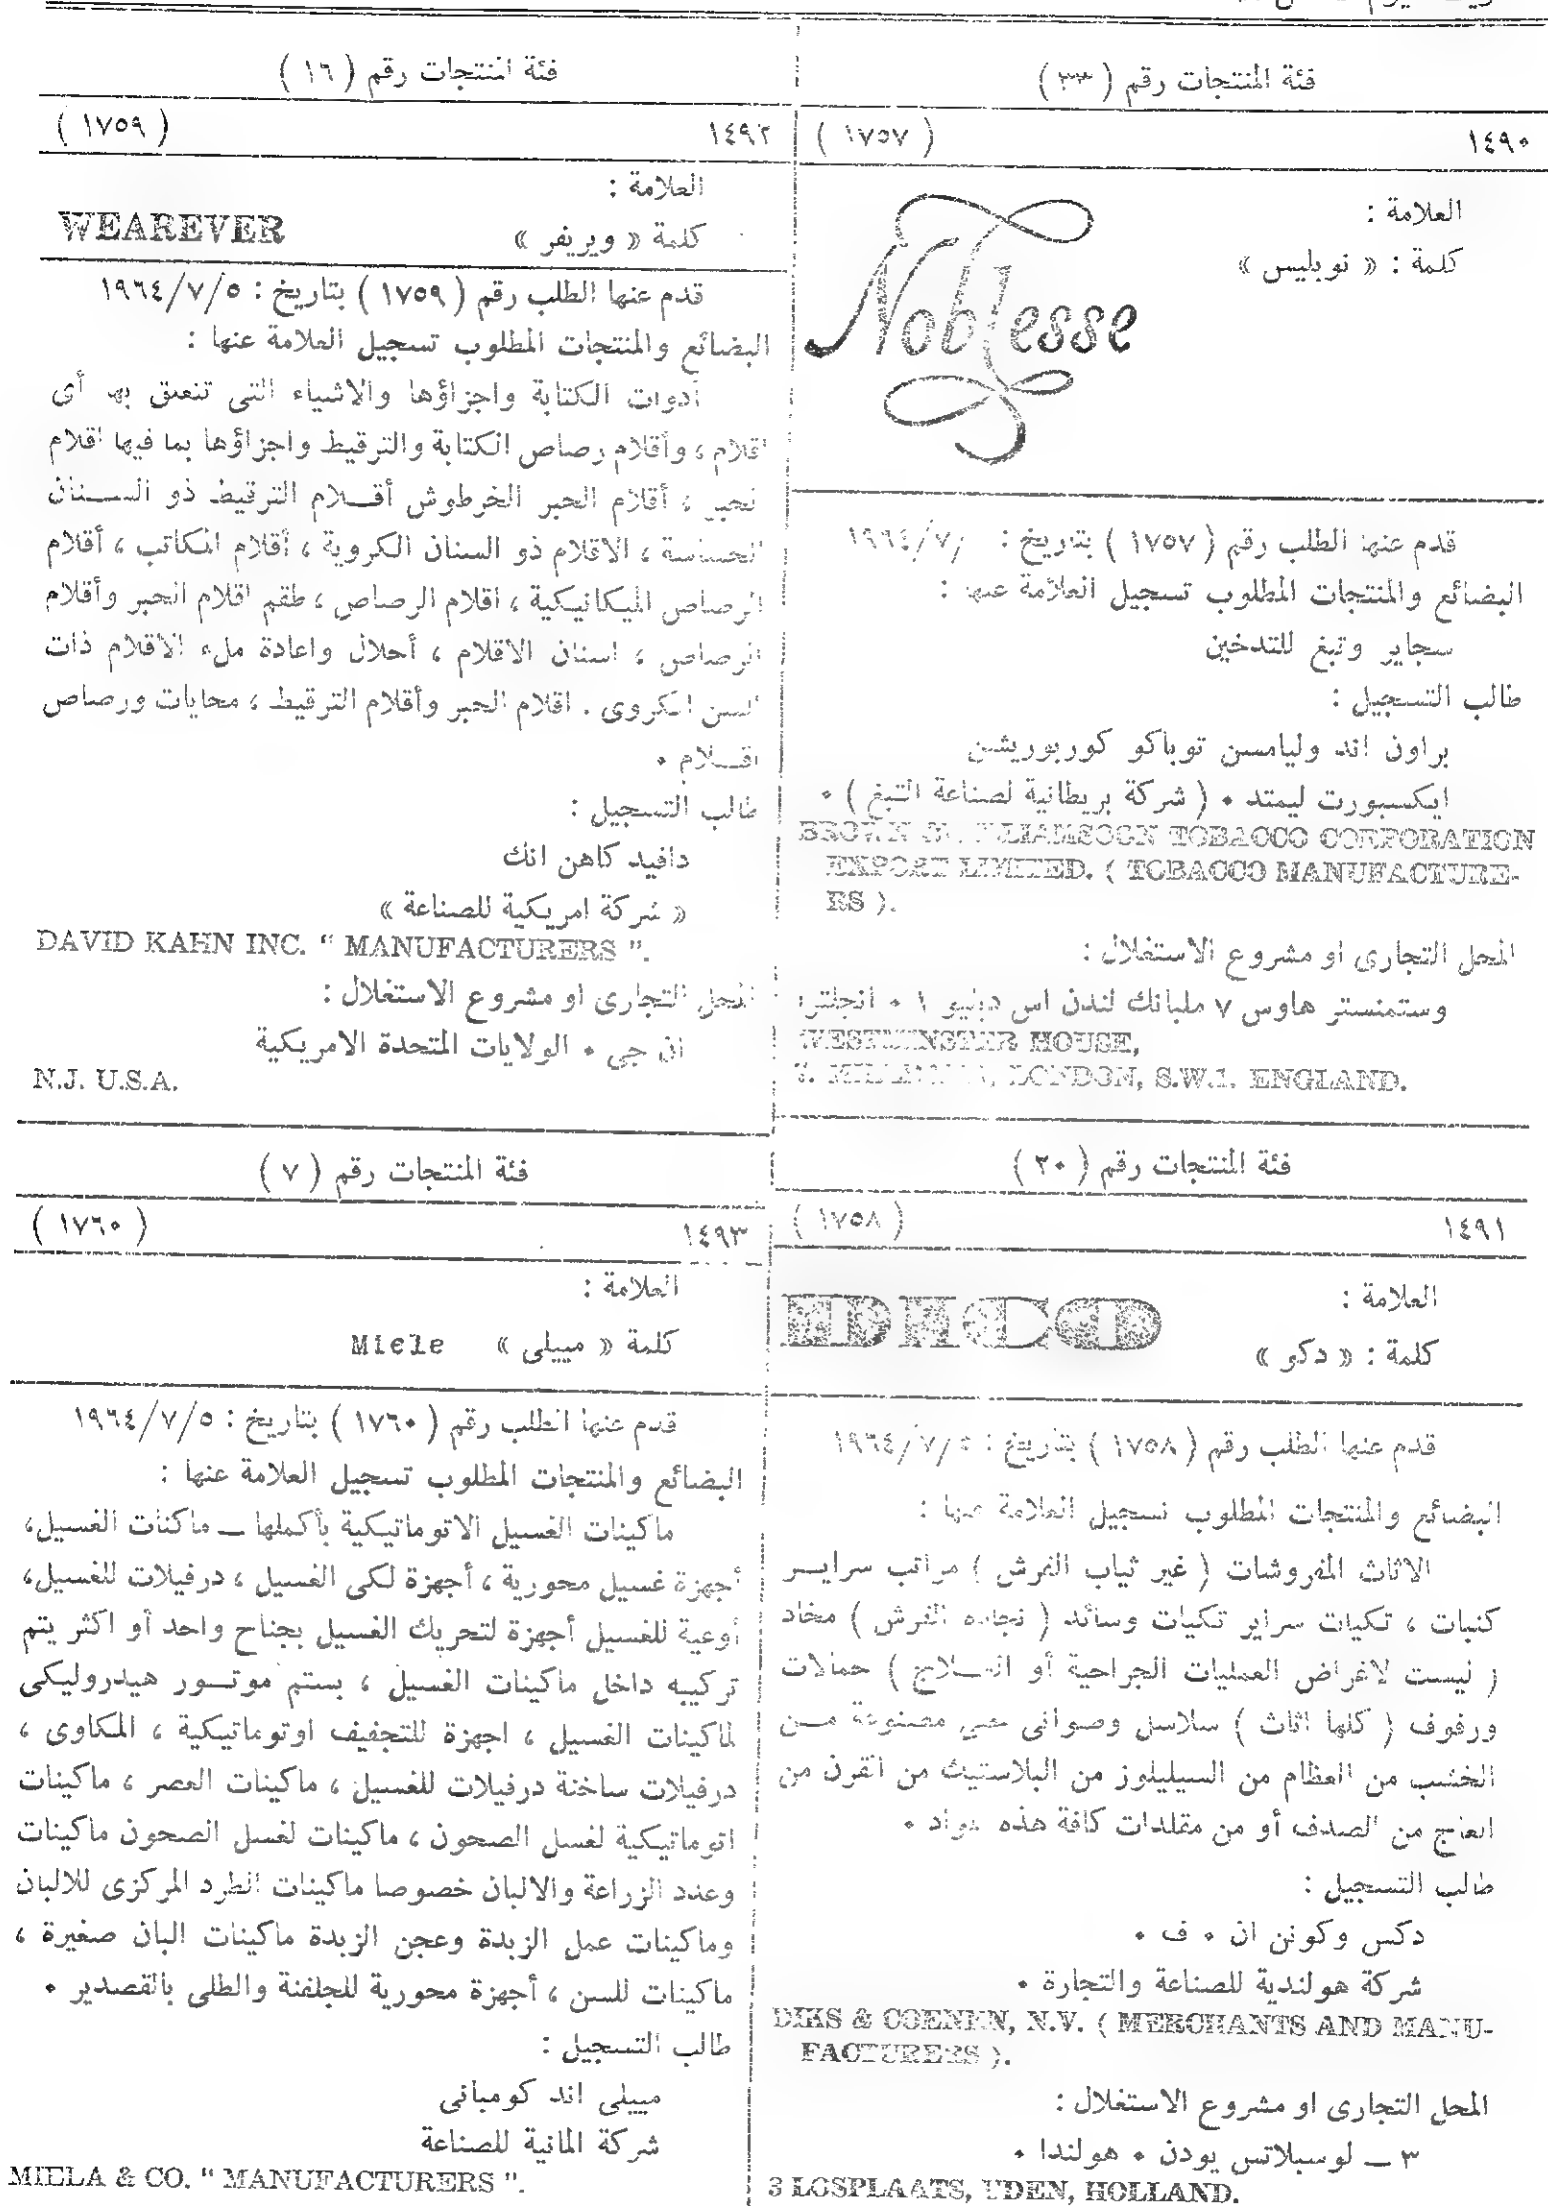 فئة المنتجات رقم ( ٣٣ )
١٤٩٠ ( ١٧٥٧ )
العلامة :
كلمة : « نوبليس »
Noblesse
قدم عنها الطلب رقم ( ١٧٥٧ ) بتاريخ : /١٩٦٤/٧
البضائع والمنتجات المطلوب تسجيل العلامة عنها :
سجاير وتبغ للتدخين
طالب التسجيل :
براون اند وليامسن توباكو كوربوريشن
ايكسبورت ليمتد ٠ ( شركة بريطانية لصناعة التبغ ) ٠
BROWN TOBACCO CORPORATION
EXPORT LIMITED. ( TOBACCO MANUFACTURE-
RS ).
المحل التجارى او مشروع الاستغلال :
وستمنستر هاوس ٧ ملبانك لندن اس دبليو ١ ٠ انجلترا
WESTMINSTER HOUSE,
LONDON, S.W.1. ENGLAND.
فئة المنتجات رقم ( ٢٠ )
١٤٩١ ( ١٧٥٨ )
العلامة :
كلمة : « دكو »
قدم عنها الطلب رقم ( ١٧٥٨ ) بتاريخ : ١٩٦٤/٧/٥
البضائع والمنتجات المطلوب تسجيل العلامة عنها :
الاثاث المفروشات ( غير ثياب الفرش ) مراتب سرايــر
كنبات ، تكيات سراير تكيات وسائد ( الفرش ) مخاد
( ليست لاغراض العمليات الجراحية أو العــلاج ) حمالات
ورفوف ( كلها اثاث ) سلاسل وصوانى مصنوعة مــن
الخشب من العظام من السيليلوز من البلاستيك من القرن من
العاج من الصدف أو من مقلدات كافة هذه مواد ٠
طالب التسجيل :
دكس وكونن ان ٠ ف ٠
شركة هولندية للصناعة والتجارة ٠
DIKS & COENEN, N.V. ( MERCHANTS AND MANU-
FACTURERS ).
المحل التجارى او مشروع الاستغلال :
٣ ــ لوسبلاتس يودن ٠ هولندا ٠
3 LOSPLAATS, UDEN, HOLLAND.
فئة المنتجات رقم ( ١٦ )
١٤٩٢ ( ١٧٥٩ )
العلامة :
كلمة « ويريفر » WEAREVER
قدم عنها الطلب رقم ( ١٧٥٩ ) بتاريخ : ١٩٦٤/٧/٥
البضائع والمنتجات المطلوب تسجيل العلامة عنها :
أدوات الكتابة واجزاؤها والاشياء التى تتعلق بها أى
اقلام ، وأقلام رصاص الكتابة والترقيط واجزاؤها بما فيها اقلام
الحبر ، أقلام الحبر الخرطوش أقــلام الترقيط ذو الســنان
الحساسة ، الاقلام ذو السنان الكروية ، أقلام المكاتب ، أقلام
الرصاص الميكانيكية ، اقلام الرصاص ، طقم اقلام الحبر وأقلام
الرصاص ، اسنان الاقلام ، أحلال واعادة ملء الاقلام ذات
السن الكروى . اقلام الحبر وأقلام الترقيط ، محايات ورصاص
اقــلام ٠
طالب التسجيل :
دافيد كاهن انك
« شركة امريكية للصناعة »
DAVID KAHN INC. " MANUFACTURERS ".
المحل التجارى او مشروع الاستغلال :
ان جى ٠ الولايات المتحدة الامريكية
N.J. U.S.A.
فئة المنتجات رقم ( ٧ )
١٤٩٣ ( ١٧٦٠ )
العلامة :
كلمة « مييلى » Miele
قدم عنها الطلب رقم ( ١٧٦٠ ) بتاريخ : ١٩٦٤/٧/٥
البضائع والمنتجات المطلوب تسجيل العلامة عنها :
ماكينات الغسيل الاتوماتيكية بأكملها ــ ماكنات الغسيل،
أجهزة غسيل محورية ، أجهزة لكى الغسيل ، درفيلات للغسيل،
أوعية للغسيل أجهزة لتحريك الغسيل بجناح واحد أو اكثر يتم
تركيبه داخل ماكينات الغسيل ، بستم موتــور هيدروليكى
لماكينات الغسيل ، اجهزة للتجفيف اوتوماتيكية ، المكاوى ،
درفيلات ساخنة درفيلات للغسيل ، ماكينات العصر ، ماكينات
اتوماتيكية لغسل الصحون ، ماكينات لغسل الصحون ماكينات
وعدد الزراعة والالبان خصوصا ماكينات الطرد المركزى للالبان
وماكينات عمل الزبدة وعجن الزبدة ماكينات البان صغيرة ،
ماكينات للسن ، أجهزة محورية للجلفنة والطلى بالقصدير ٠
طالب التسجيل :
مييلى اند كومبانى
شركة المانية للصناعة
MIELA & CO. " MANUFACTURERS ".